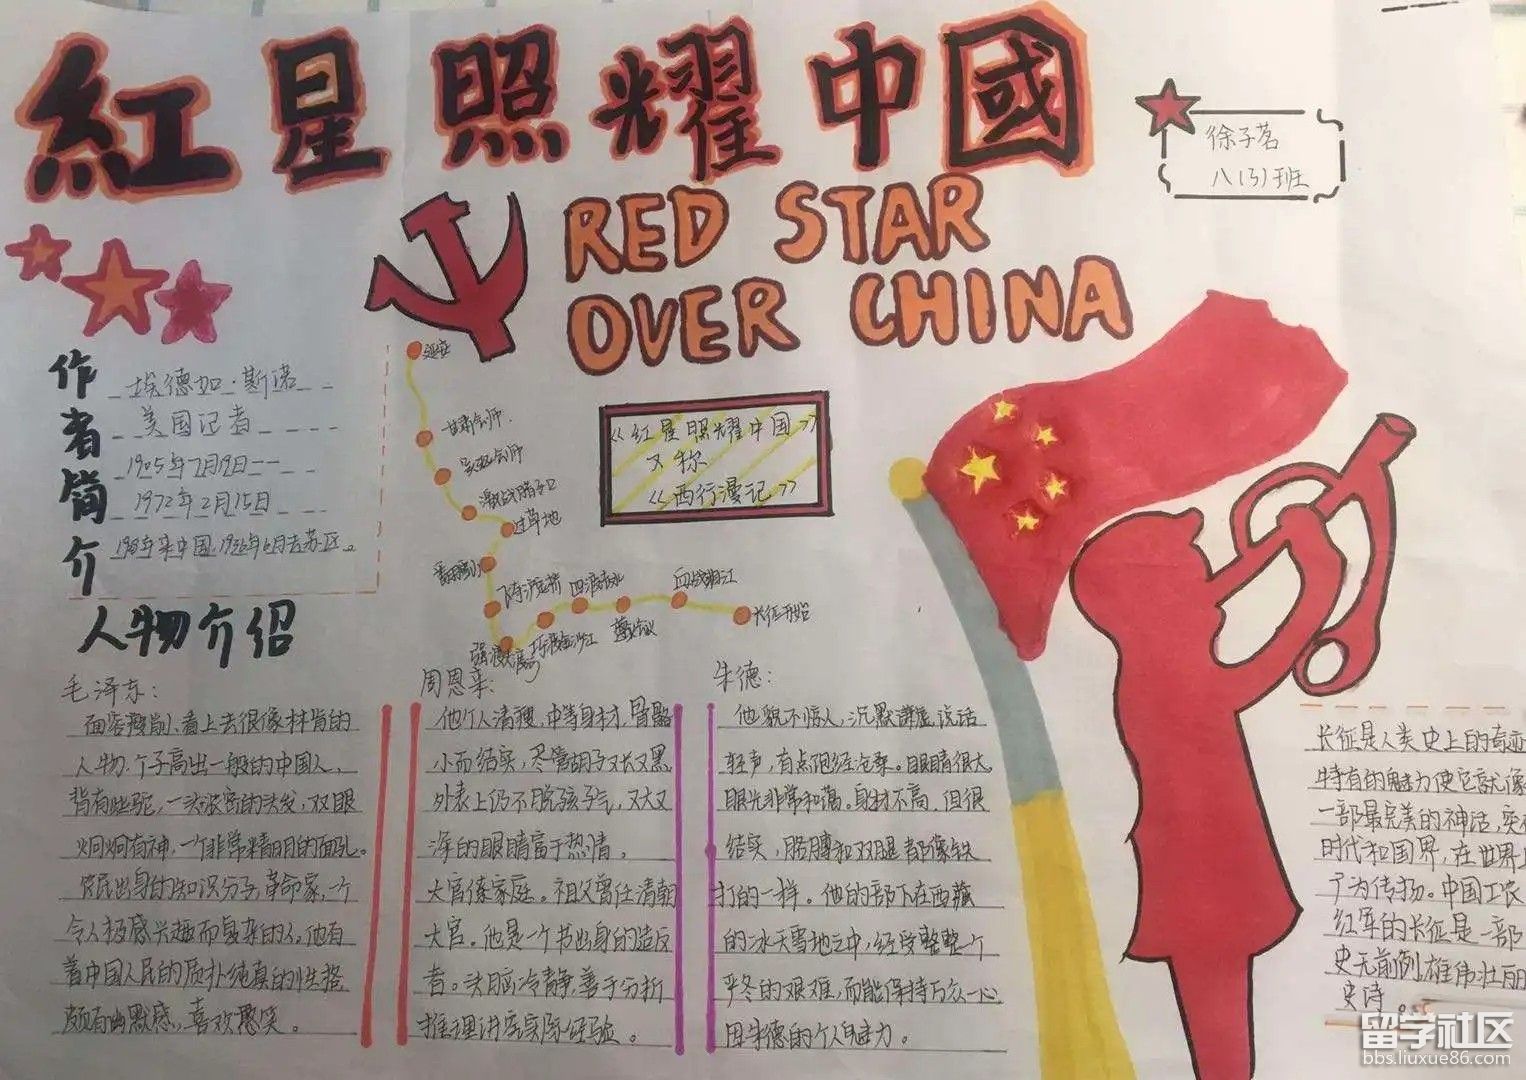 紅星照耀中國
RED STAR
OVER CHINA
徐子茗
八(3)班
作者简介
埃德加·斯诺
美国记者
1905年7月19日
1972年2月15日
《红星照耀中国》
又称
《西行漫记》
延安
过草地
四渡赤水
血战湘江
长征开始
人物介绍
毛泽东:
面容瘦削、看上去很像林肯的
人物、个子高出一般的中国人、
背有些驼,一头浓密的头发,双眼
炯炯有神,一个非常精明的面孔。
农民出身的知识分子,革命家,一个
令人极感兴趣而复杂的人,他有
着中国人民的质朴纯真的性格
颇有幽默感,喜欢憨笑。
周恩来:
他个人清瘦,中等身材,骨骼
小而结实,尽管胡子又长又黑
外表上仍不脱孩子气,又大又
深的眼睛富于热情。
大官僚家庭。祖父曾任清朝
大官。他是一个书出身的造反
者。头脑冷静,善于分析
推理讲究实际经验。
朱德:
他貌不惊人,沉默谦虚,说话
轻声,有点饱经沧桑。眼睛很大
眼光非常和蔼。身材不高,但很
结实,胳膊和双腿都像铁
打的一样。他的部下在西藏
的冰天雪地之中,经受整整个
严冬的艰难,而能保持万众一心
因朱德的个人魅力。
长征是人类史上的奇迹
特有的魅力使它就像
一部最完美的神话,突破
时代和国界,在世界上
广为传扬。中国工农
红军的长征是一部
史无前例,雄伟壮丽
史诗。
留学社区
bbs.liuxue86.com